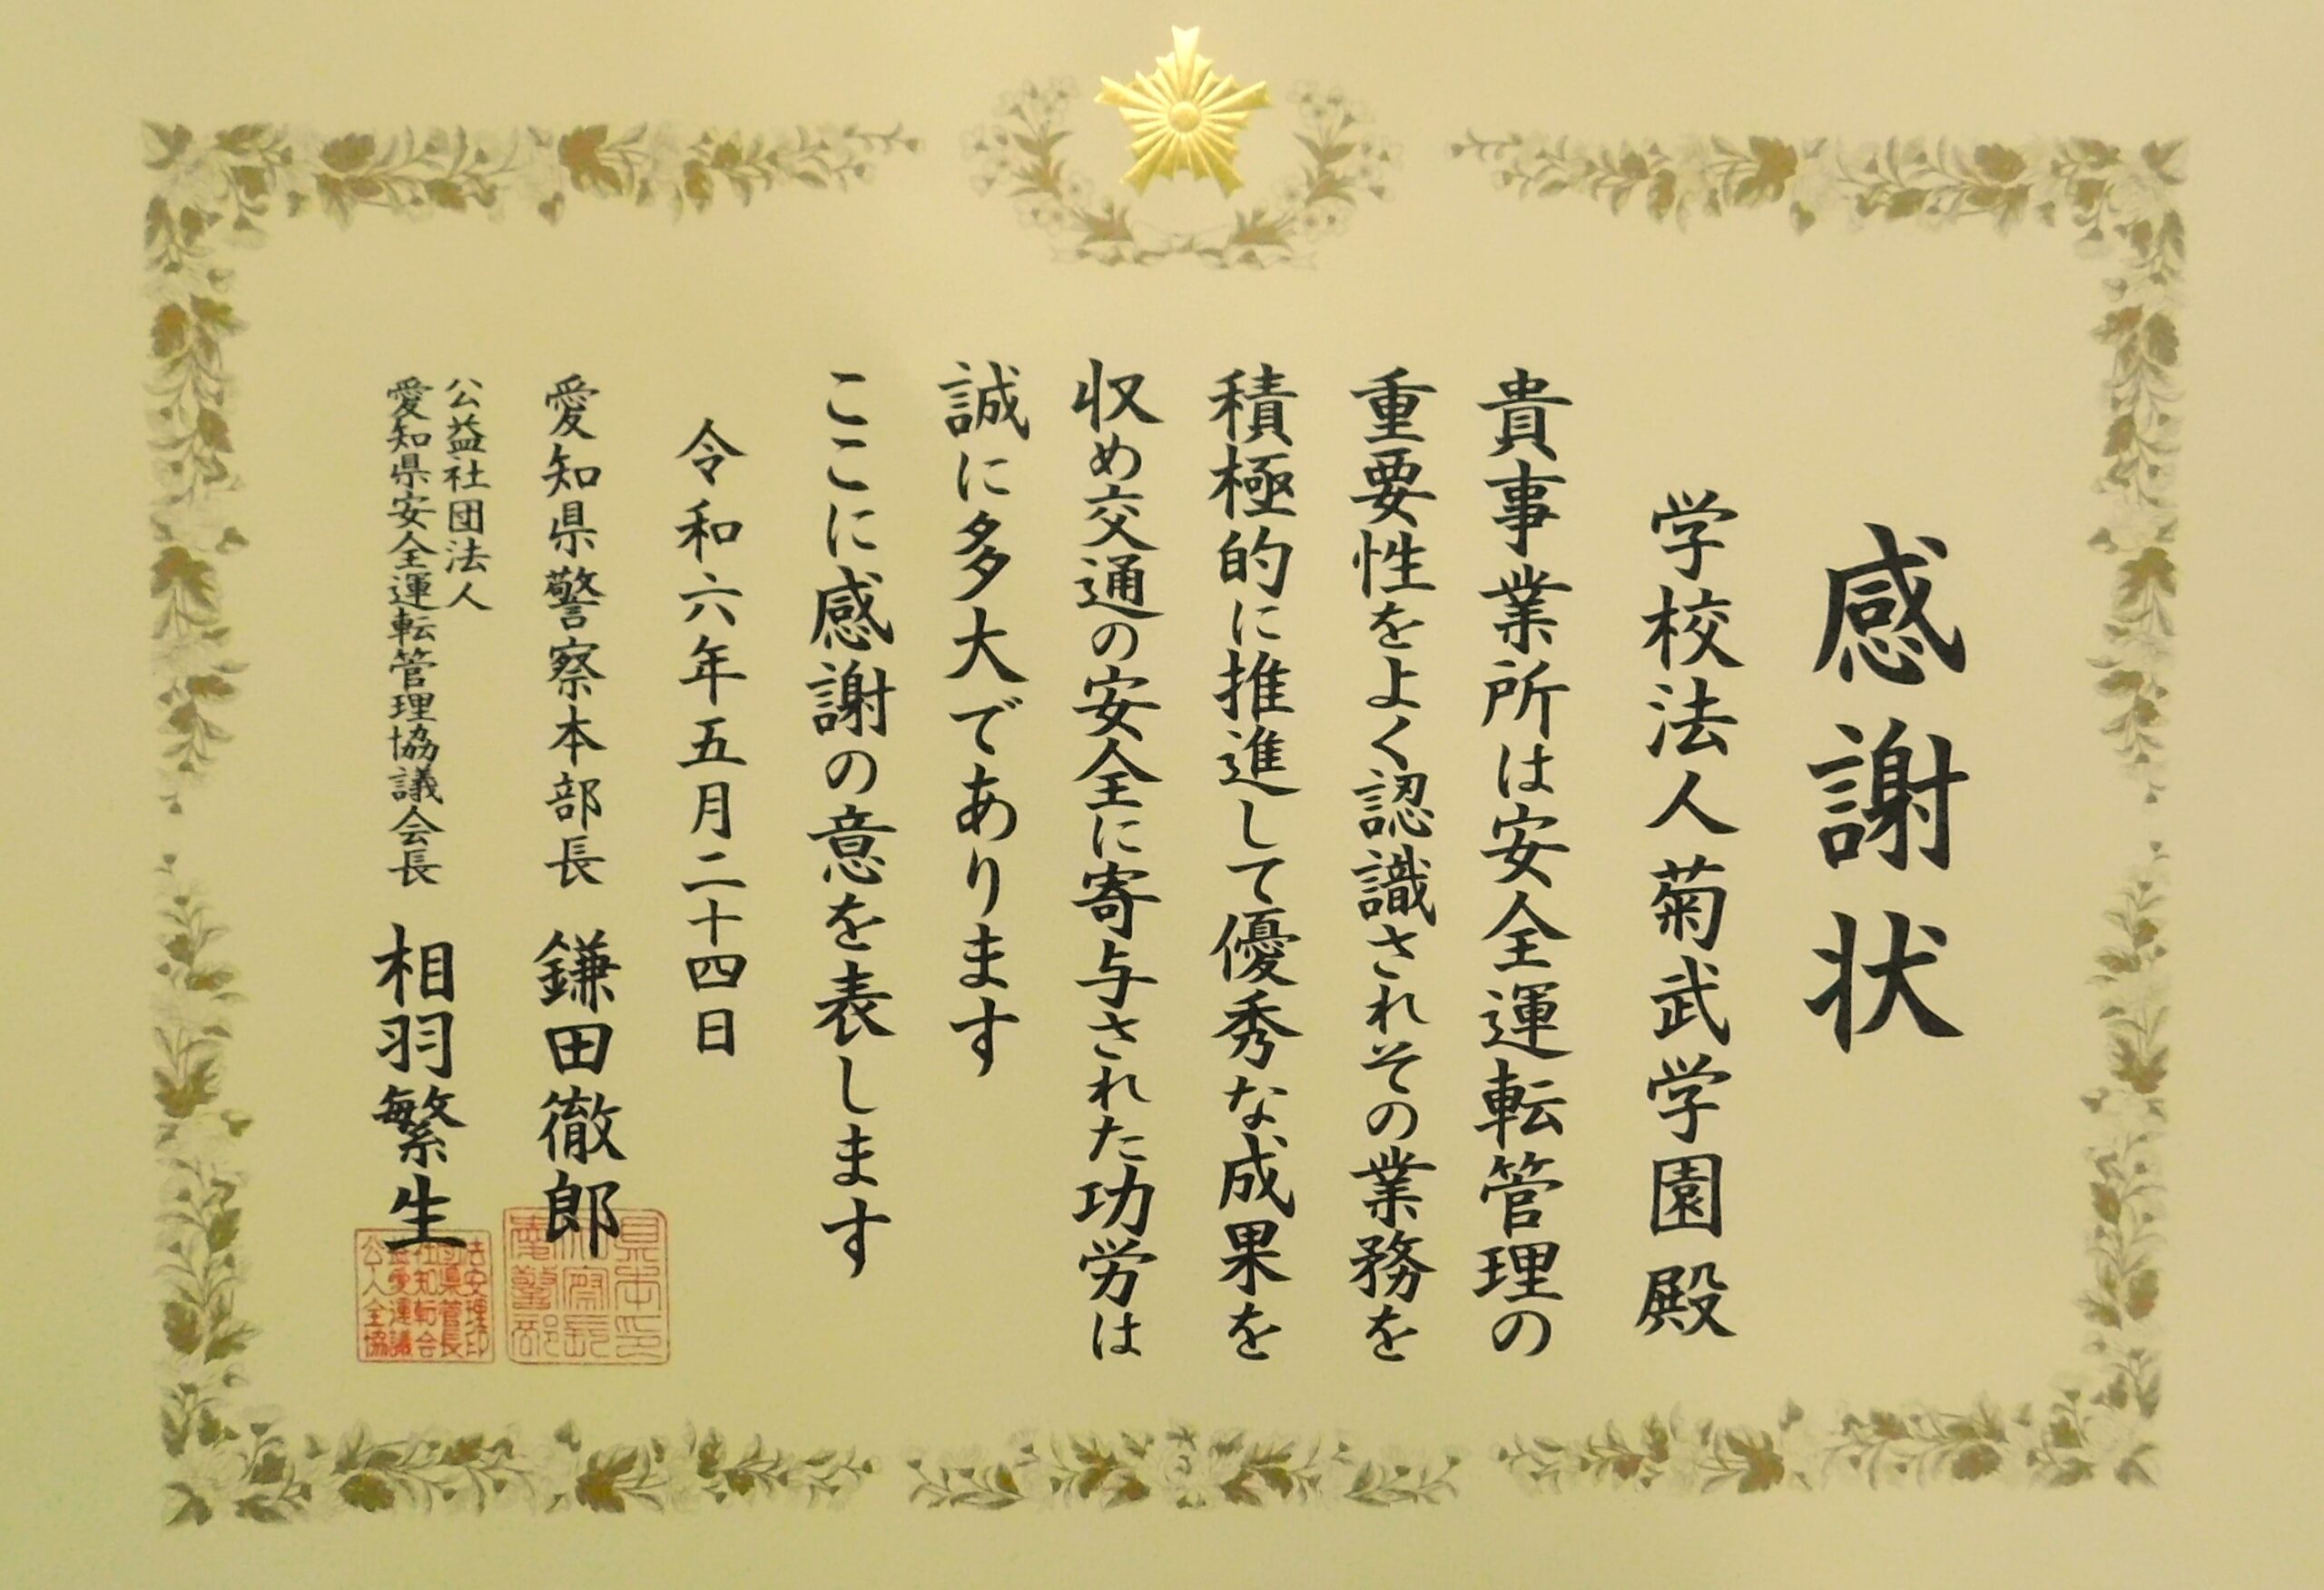 感謝状
学校法人菊武学園殿
貴事業所は安全運転管理の
重要性をよく認識されその業務を
積極的に推進して優秀な成果を
収め交通の安全に寄与された功労は
誠に多大であります
ここに感謝の意を表します
令和六年五月二十四日
愛知県警察本部長 鎌田徹郎
公益社団法人
愛知県安全運転管理協議会長 相羽繁生